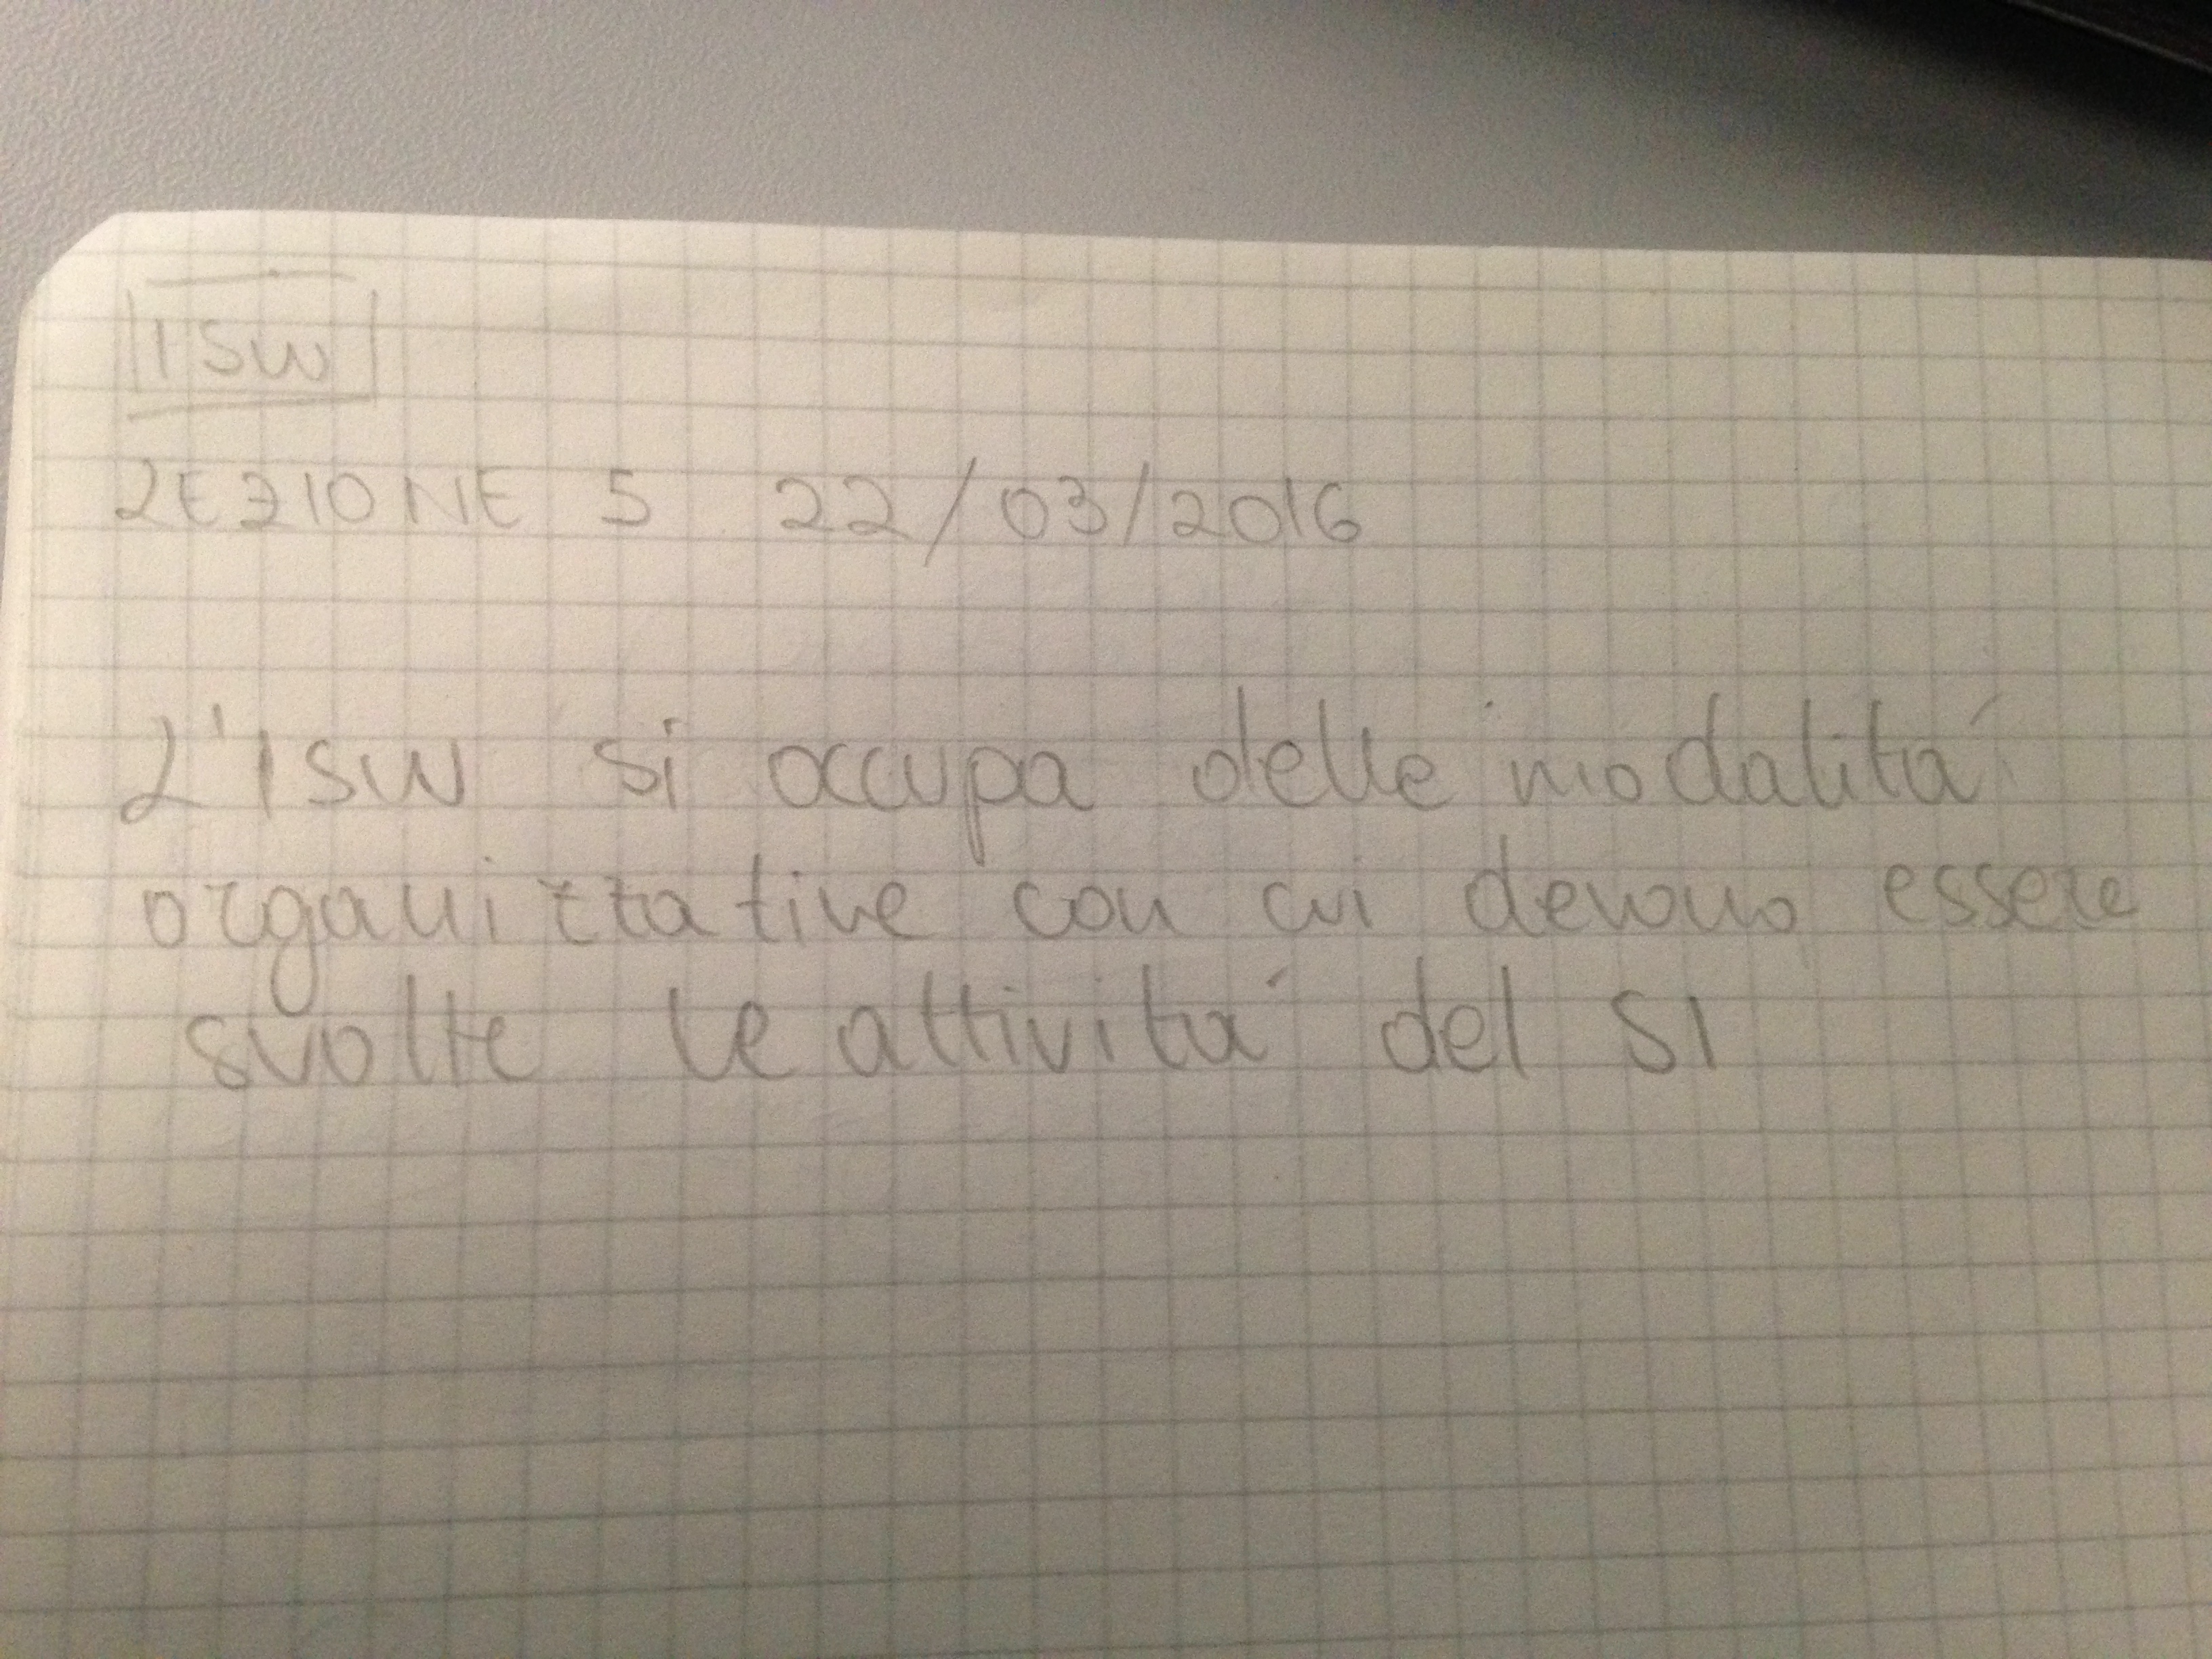 ISW
LEZIONE 5 22/03/2016
L'ISW si occupa delle modalità
organizzative con cui devono essere
svolte le attività del SI